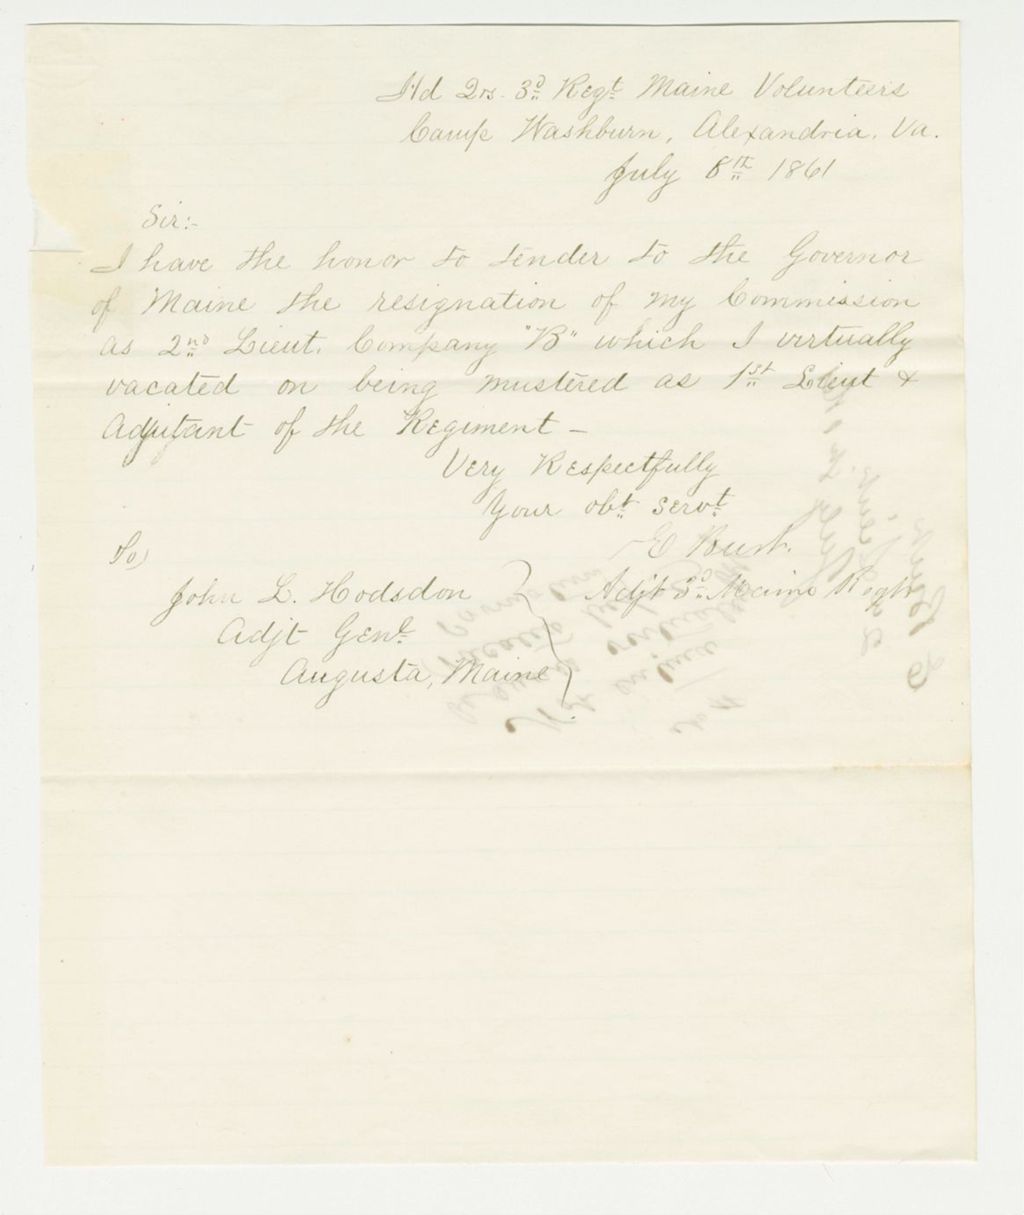 Hd Qrs. 3d Regt. Maine Volunteers
Camp Washburn, Alexandria. Va.
July 8th 1861
Sir:-
I have the honor to tender to the Governor
of Maine the resignation of my Commission
as 2nd Lieut. Company "B" which I virtually
vacated on being mustered as 1st Lieut &
Adjutant of the Regiment -
Very Respectfully
Your obt. servt
E Burt.
Adjt 3d. Maine Regt
To,
John L. Hodsdon
Adjt Genl.
Augusta, Maine